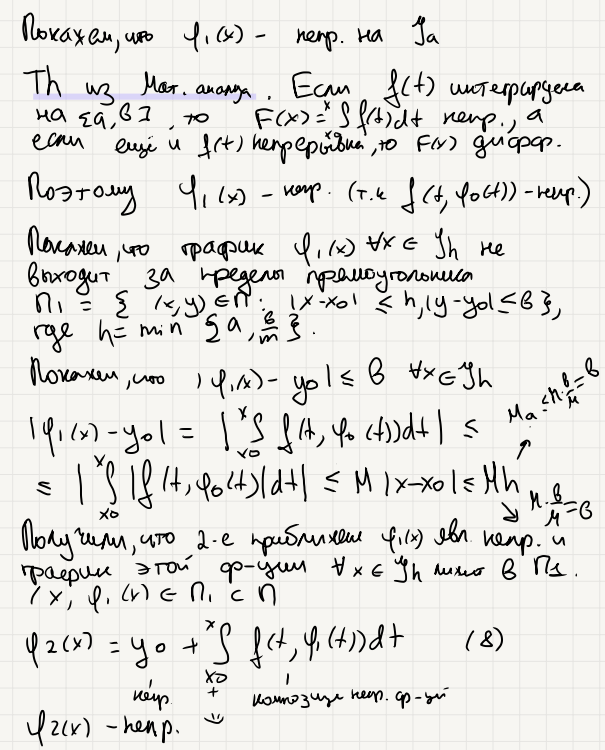 Покажем, что φ₁(x) - непр. на Ja
Th из Мат. анализа. Если f(t) интегрируема
на [a, b], то F(x) = ˣ∫ f(t)dt непр., а
если ещё и f(t) непрерывна, то F(x) дифф.
Поэтому φ₁(x) - непр. (т.к f(t, φ₀(t)) - непр.)
Покажем, что график φ₁(x) ∀x ∈ Jh не
выходит за пределы прямоугольника
Π₁ = { (x, y) ∈ Π : |x-x₀| ≤ h, |y-y₀| ≤ b },
где h = min {a, b/m}.
Покажем, что |φ₁(x) - y₀| ≤ b ∀x ∈ Jh
|φ₁(x) - y₀| = | ∫ₓ₀ˣ f(t, φ₀(t))dt | ≤
Ma ≤ M · b/M = b
≤ | ∫ₓ₀ˣ |f(t, φ₀(t)|dt| ≤ M |x-x₀| ≤ Mh
M · b/M = b
Получили, что 2-е приближен φ₁(x) явл. непр. и
график этой ф-ции ∀x ∈ Jh лежит в Π₁.
(x, φ₁(x) ∈ Π₁ ⊂ Π
φ₂(x) = y₀ + ∫ₓ₀ˣ f(t, φ₁(t))dt (8)
непр. + композиция непр. ф-ций
φ₂(x) - непр.